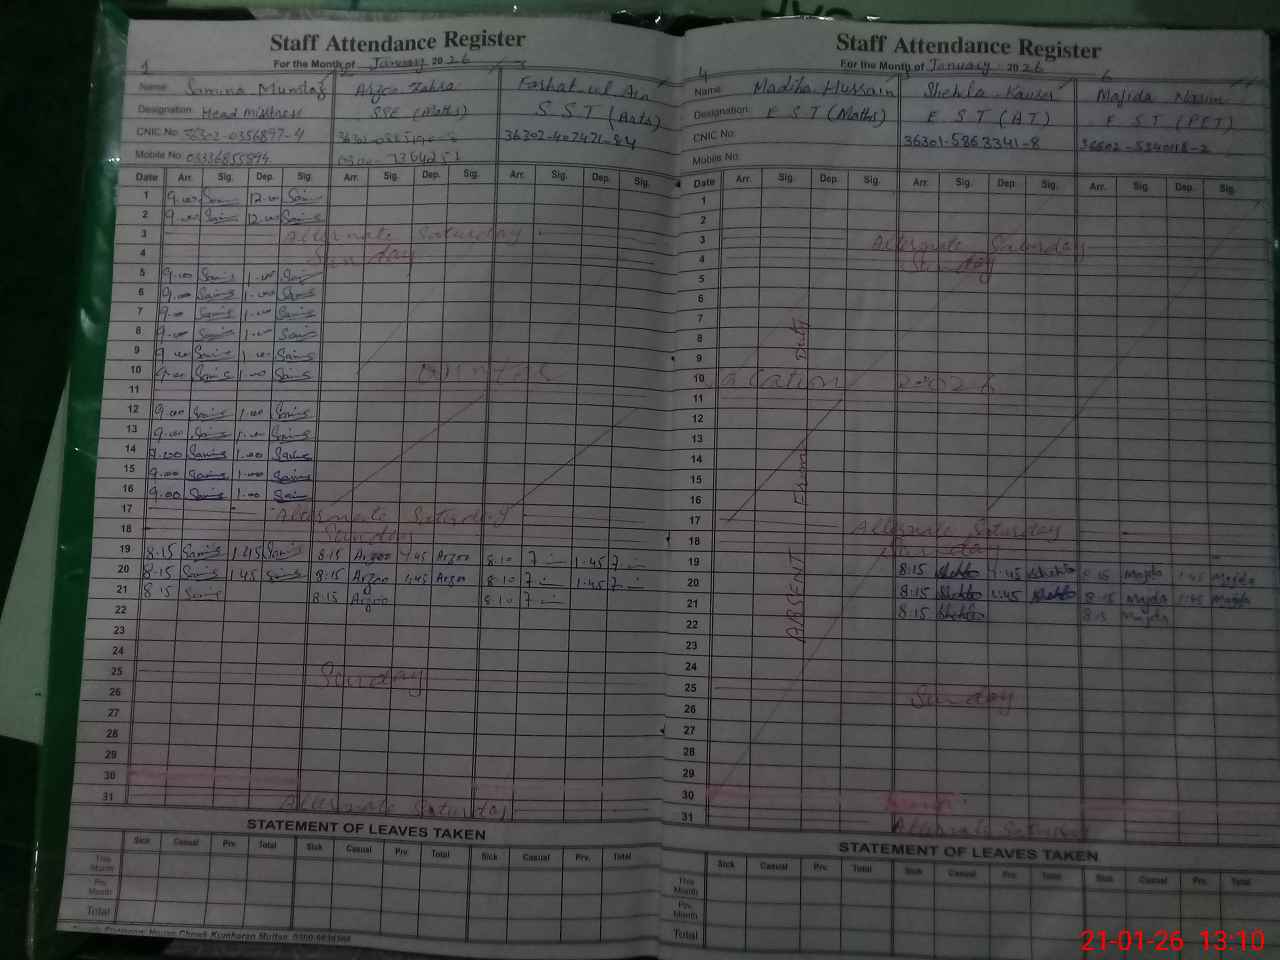 Staff Attendance Register
For the Month of January 2026
1
Name Samina Mumtaz
Designation: Head Mistress
CNIC No. 36302-0356897-4
Mobile No. 03336855894
Arzoo Zahra
SSE (Maths)
Farhat-ul Ain
S.S.T (Arts)
36302-407421-84
Date Arr. Sig. Dep. Sig. Arr. Sig. Dep. Sig. Arr. Sig. Dep. Sig.
1 9.00 12.00
2 9.00 12.00
3 Alternate Saturday
4 Sunday
5 9.00 1.00
6 9.00 1.00
7 9.00 1.00
8 9.00 1.00
9 9.00 1.00
10 9.00 1.00 Winter
11
12 9.00 1.00
13 9.00 1.00
14 9.00 1.00
15 9.00 1.00
16 9.00 1.00
17 Alternate Saturday
18 Sunday
19 8.15 1.45 8.15 Arzoo 1.45 Arzoo 8.10 1.45
20 8.15 1.45 8.15 Arzoo 1.45 Arzoo 8.10 1.45
21 8.15 8.15 Arzoo 8.10
22
23
24
25 Sunday
26
27
28
29
30
31 Alternate Saturday
STATEMENT OF LEAVES TAKEN
Sick Casual Prv. Total Sick Casual Prv. Total Sick Casual Prv. Total
This Month
Prv. Month
Total
Staff Attendance Register
For the Month of January 2026
4
6
Name: Madiha Hussain
Designation: E S T (Maths)
CNIC No:
Mobile No:
Shehla Kausar
E S T (AT)
36301-5863341-8
Majida Nasim
E S T (PET)
Date Arr. Sig. Dep. Sig. Arr. Sig. Dep. Sig. Arr. Sig. Dep. Sig.
1
2
3 Alternate Saturday
4 Sunday
5
6
7
8
9
10 Vacation 2026
11
12
13
14
15
16
17 Alternate Saturday
18 Sunday
19 8.15 Shehla 1.45 Shehla 8.15 Majda 1.45 Majda
20 8.15 Shehla 1.45 Shehla 8.15 Majda 1.45 Majda
21 8.15 Shehla 8.15 Majda
22
23
24
25 Sunday
26
27
28
29
30
31 Alternate Saturday
ABSENT Exam Duty
STATEMENT OF LEAVES TAKEN
Sick Casual Prv. Total Sick Casual Prv. Total Sick Casual Prv. Total
This Month
Prv. Month
Total
21-01-26 13:10